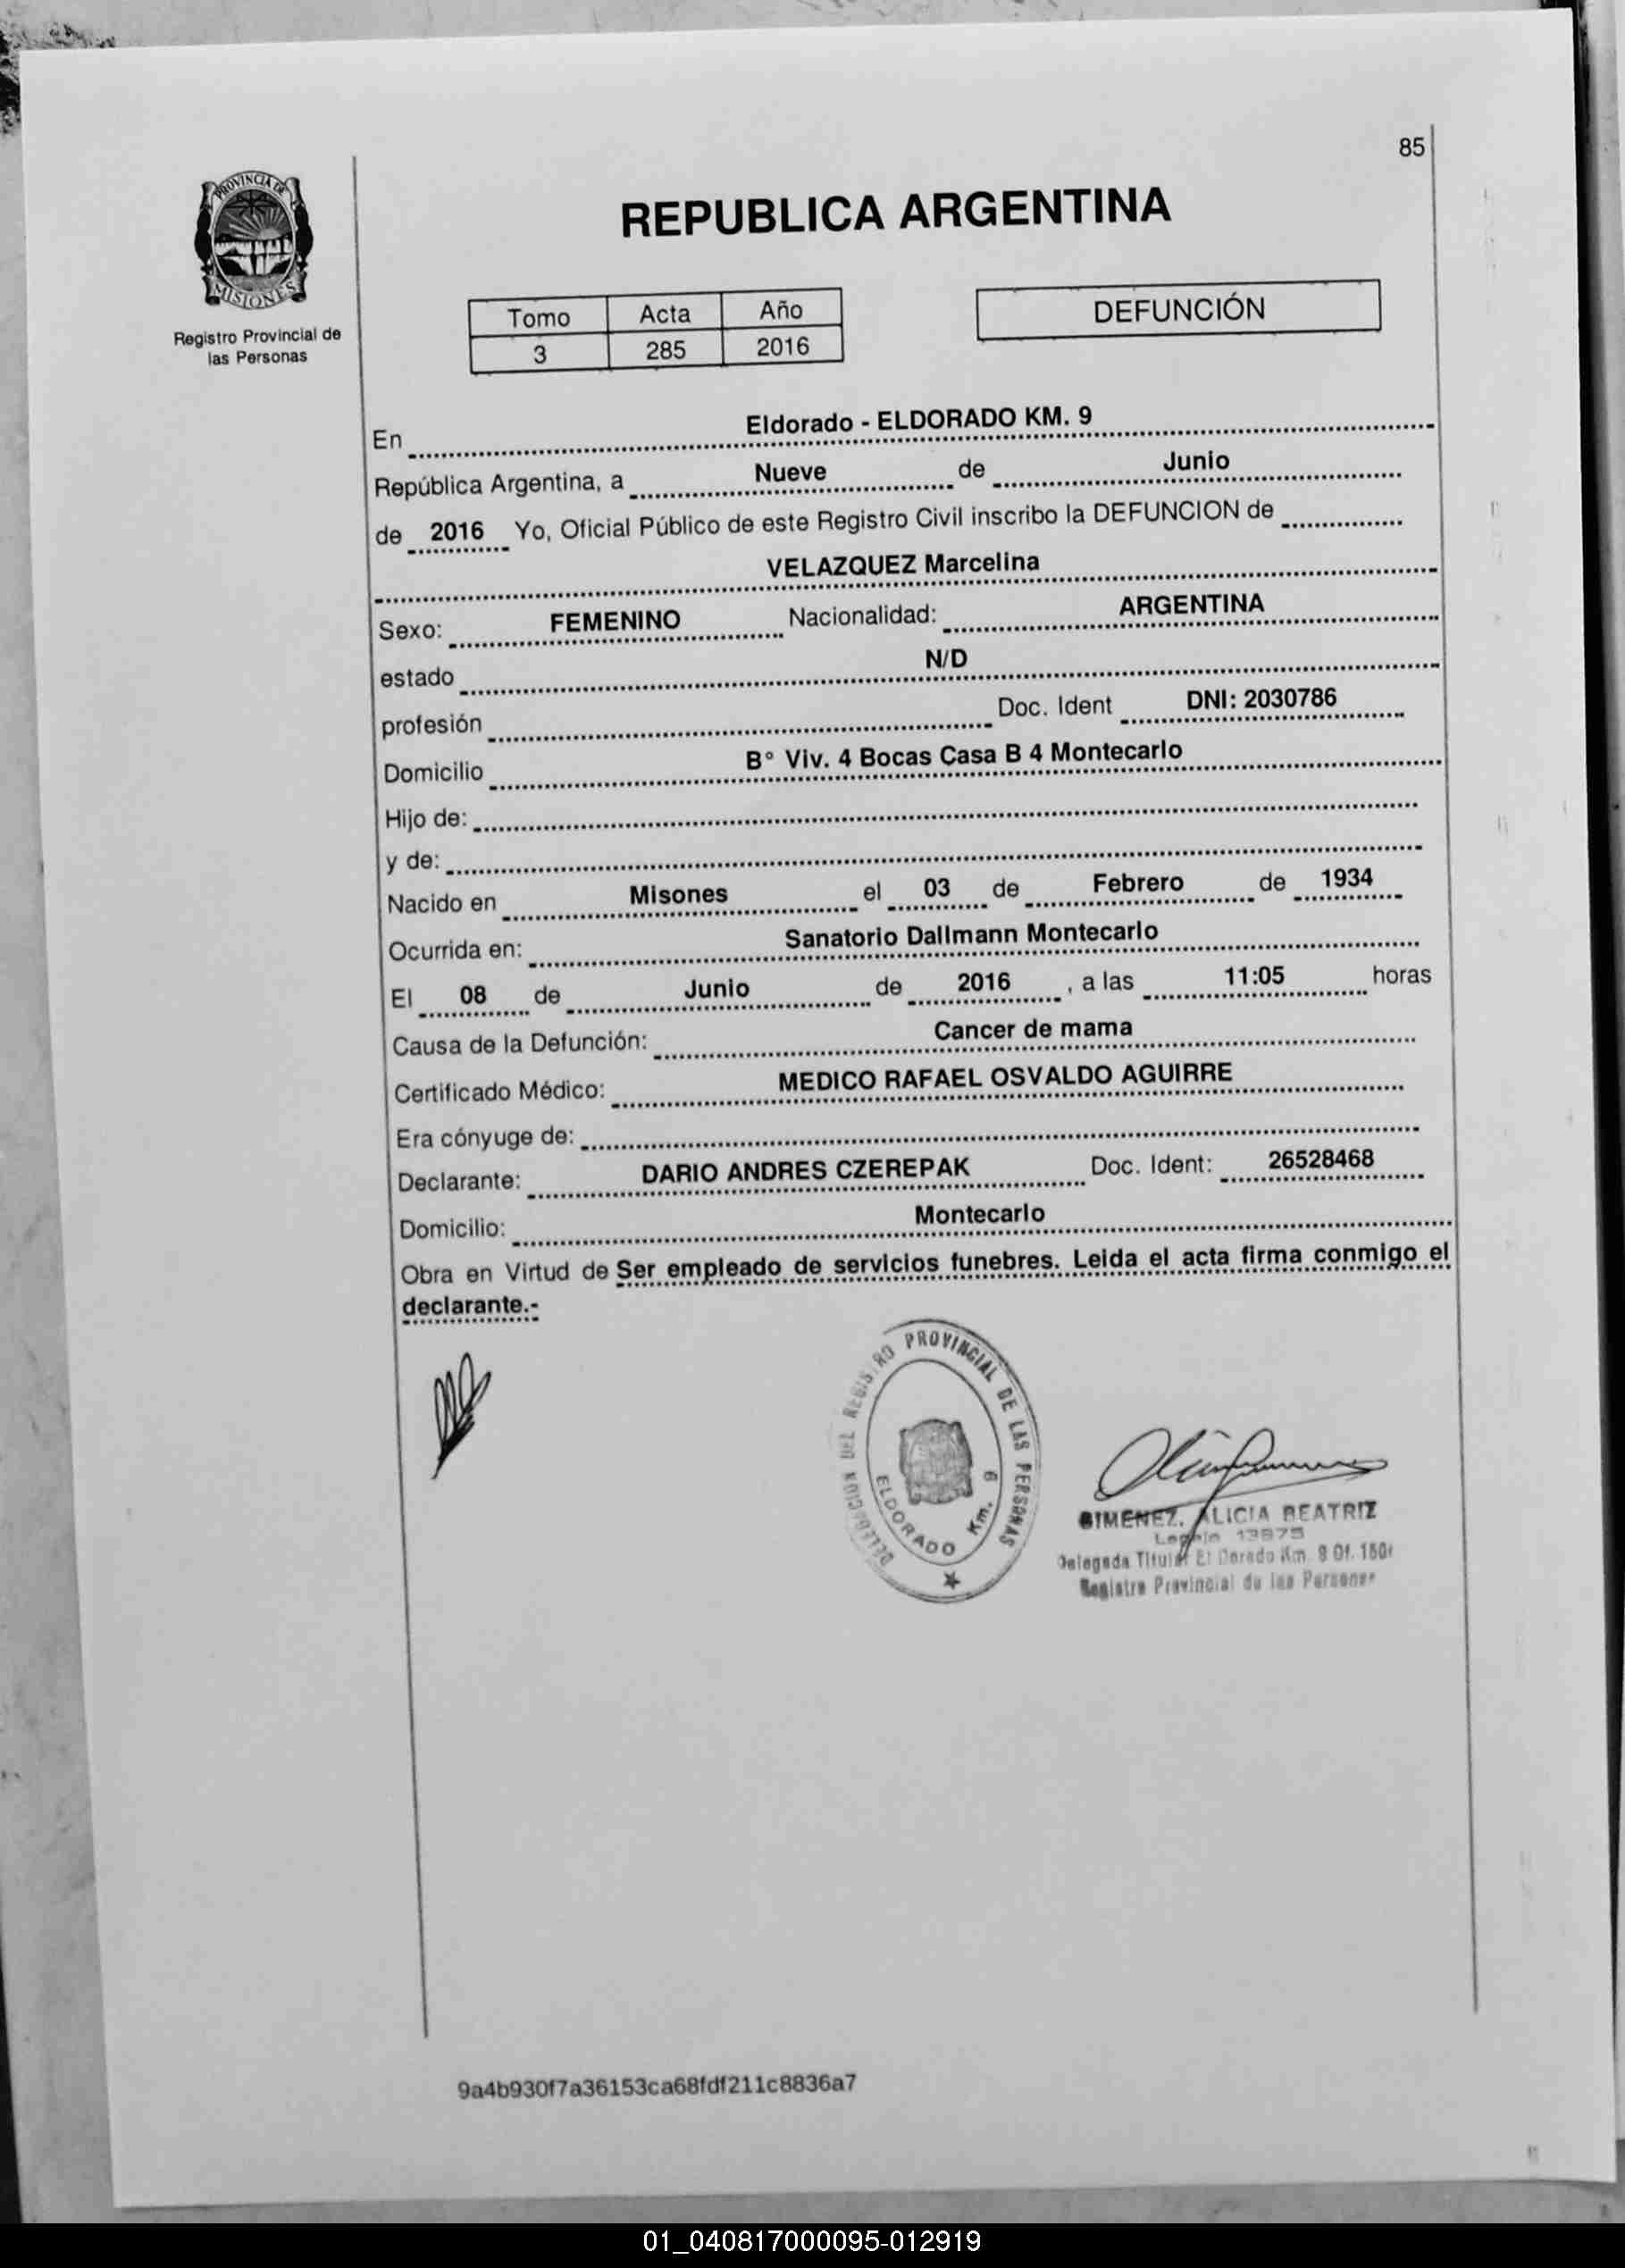 85
PROVINCIA DE
MISIONES
Registro Provincial de
las Personas
REPUBLICA ARGENTINA
Tomo Acta Año
3 285 2016
DEFUNCIÓN
En Eldorado - ELDORADO KM. 9
República Argentina, a Nueve de Junio
de 2016 Yo, Oficial Público de este Registro Civil inscribo la DEFUNCION de
VELAZQUEZ Marcelina
Sexo: FEMENINO Nacionalidad: ARGENTINA
estado N/D
profesión Doc. Ident DNI: 2030786
Domicilio B° Viv. 4 Bocas Casa B 4 Montecarlo
Hijo de:
y de:
Nacido en Misones el 03 de Febrero de 1934
Ocurrida en: Sanatorio Dallmann Montecarlo
El 08 de Junio de 2016 , a las 11:05 horas
Causa de la Defunción: Cancer de mama
Certificado Médico: MEDICO RAFAEL OSVALDO AGUIRRE
Era cónyuge de:
Declarante: DARIO ANDRES CZEREPAK Doc. Ident: 26528468
Domicilio: Montecarlo
Obra en Virtud de Ser empleado de servicios funebres. Leida el acta firma conmigo el
declarante.-
DELEGACION DEL REGISTRO PROVINCIAL DE LAS PERSONAS
ELDORADO Km. 9
GIMENEZ. ALICIA BEATRIZ
Legajo
Delegada Titular El Dorado Km. 9 Of.
Registro Provincial de las Personas
9a4b930f7a36153ca68fdf211c8836a7
01_040817000095-012919